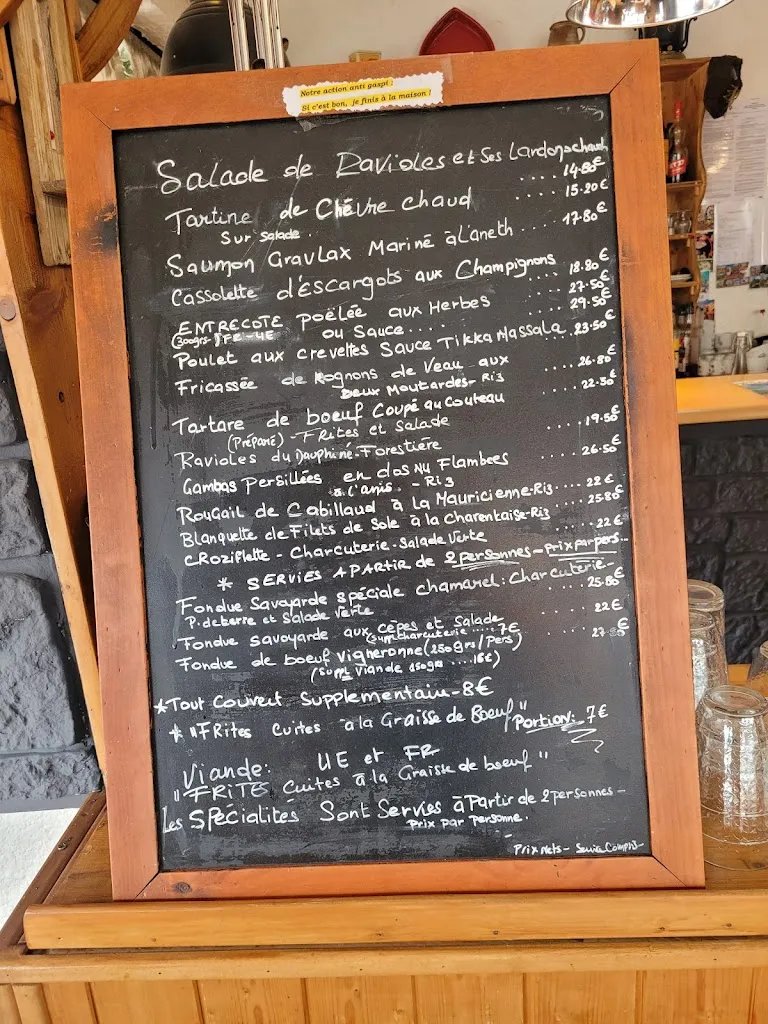 Notre action anti gaspi :
Si c'est bon, je finis à la maison !
Salade de Ravioles et Ses Lardons chauds
.... 14.80€
Tartine de Chèvre chaud .... 15.20€
Sur Salade.
Saumon Gravlax Mariné à L'aneth .... 17.80€
Cassolette d'Escargots aux Champignons
.... 18.80€
ENTRECOTE poëlée aux Herbes .... 27.50€
(300grs-) FR-UE ou Sauce.... .... 29.50€
Poulet aux crevettes Sauce Tikka Massala .. 23.50€
Fricassée de Rognons de Veau aux
Deux Moutardes-Riz .... 26.80€
Tartare de boeuf Coupé au Couteau .... 22.50€
(Préparé) - FRites et Salade
Ravioles du Dauphiné-Forestière .... 19.50€
Gambas Persillées en dos Nu Flambees
à l'anis. - Riz .... 26.50€
Rougail de Cabillaud à la Mauricienne-Riz .... 22€
Blanquette de Filets de Sole à la Charentaise-Riz .... 25.80€
CRoziflette - Charcuterie-Salade Verte .... 22€
* SERVIES A PARTIR de 2 personnes - prix par pers...
Fondue Savoyarde spéciale chamarel: Charcuterie-
P. de terre et Salade Verte .... 25.80€
Fondue savoyarde aux cèpes et Salade .... 22€
(suppl charcuterie .... 7€
Fondue de boeuf Vigneronne (250grs/Pers) .... 27
(suppl Viande 150grs .... 15€)
*Tout Couvert Supplementair-8€
* "FRites Cuites à la Graisse de Boeuf" Portion: 7€
Viande: UE et FR
"FRITES Cuites à la Graisse de boeuf"
Les SPécialités Sont Servies à Partir de 2 personnes -
Prix par Personne.
Prix Nets - Service Compris-